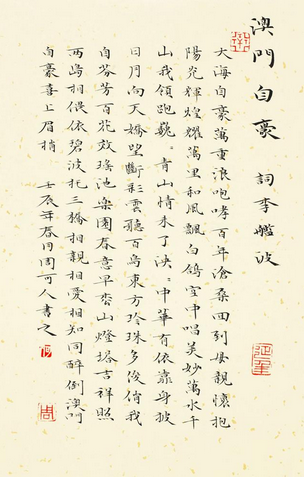 澳門自豪 詞李艦波
大海自豪萬重浪咆哮百年滄桑回到母親懷抱
陽光輝煌耀萬里和風飄白鴿空中唱美妙萬水千
山我領跑 青山情未了 中華有依靠身披
日月向天嬌 彩雲聽百鳥東方珍珠多俊俏我
自芬芳百花放瑤池樂園春意早 山燈塔吉祥照
兩島相偎依碧波托三橋相親相愛相知同醉倒澳門
自豪喜上眉梢 壬辰年春月周可人書之